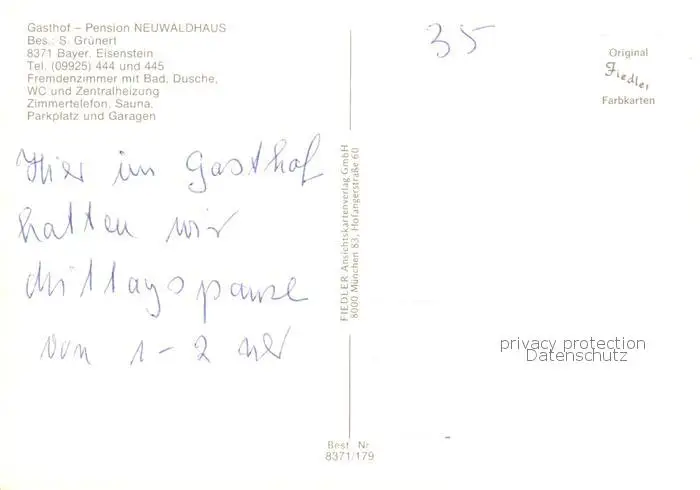 Gasthof - Pension NEUWALDHAUS
Bes.: S. Grünert
8371 Bayer. Eisenstein
Tel. (09925) 444 und 445
Fremdenzimmer mit Bad, Dusche,
WC und Zentralheizung
Zimmertelefon, Sauna,
Parkplatz und Garagen
35
Original
Fiedler
Farbkarten
Hier im Gasthof
hatten wir
Mittagspause
von 1-2 Uhr
FIEDLER Ansichtskartenverlag GmbH
8000 München 83, Hofangerstraße 60
privacy protection
Datenschutz
Best. Nr.
8371/179